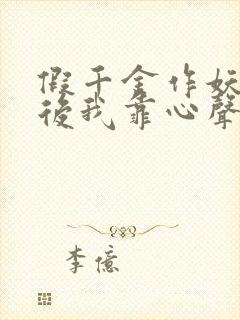 假千金作妖
後我靠心聲
李億